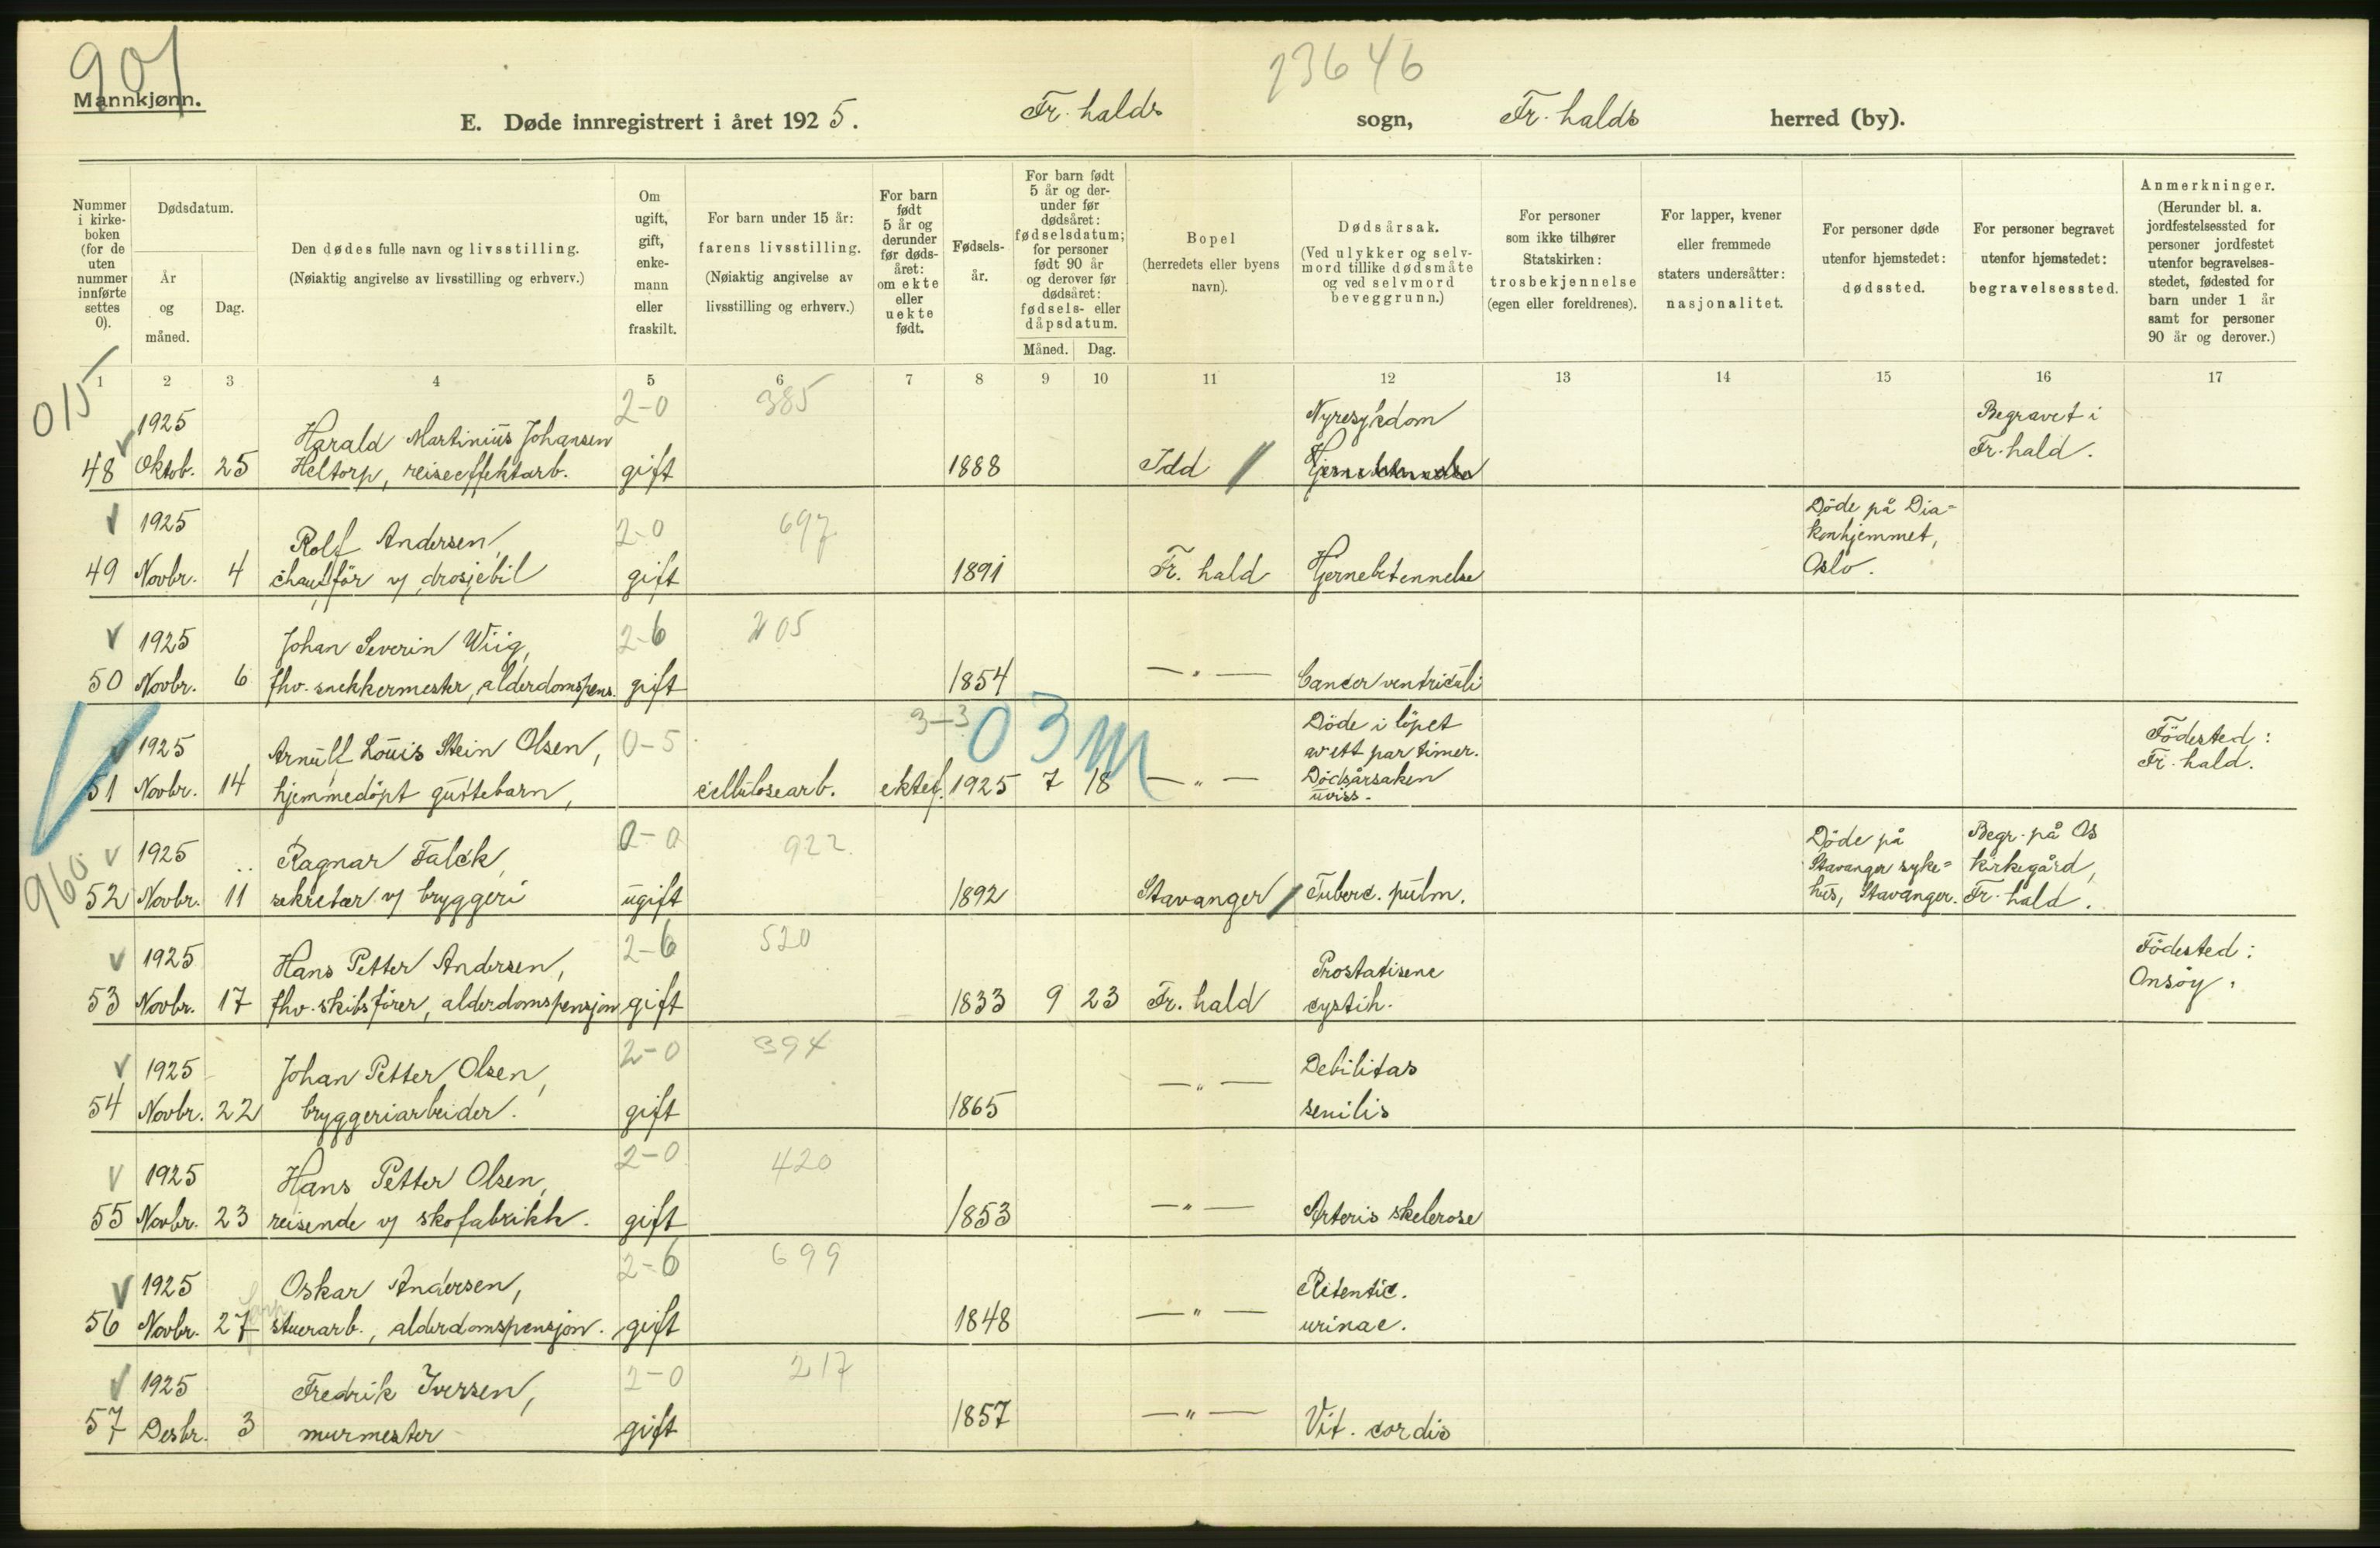 901
23646
Mannkjønn.
E. Døde innregistrert i året 1925. Fr. halds sogn, Fr. halds herred (by).
Nummer i kirke-boken (for de uten nummer innførte settes 0).
Dødsdatum.
År og måned.
Dag.
Den dødes fulle navn og livsstilling.
(Nøiaktig angivelse av livsstilling og erhverv.)
Om ugift, gift, enke-mann eller fraskilt.
For barn under 15 år:
farens livsstilling.
(Nøiaktig angivelse av livsstilling og erhverv.)
For barn født 5 år og derunder før døds-året: om ekte eller uekte født.
Fødsels-år.
For barn født 5 år og der-under før dødsåret: fødselsdatum; for personer født 90 år og derover før dødsåret: fødsels- eller dåpsdatum.
Måned. Dag.
Bopel
(herredets eller byens navn).
Dødsårsak.
(Ved ulykker og selv-mord tillike dødsmåte og ved selvmord beveggrunn.)
For personer som ikke tilhører Statskirken: trosbekjennelse (egen eller foreldrenes).
For lapper, kvener eller fremmede staters undersåtter: nasjonalitet.
For personer døde utenfor hjemstedet: dødssted.
For personer begravet utenfor hjemstedet: begravelsessted.
Anmerkninger.
(Herunder bl. a. jordfestelsessted for personer jordfestet utenfor begravelses-stedet, fødested for barn under 1 år samt for personer 90 år og derover.)
1 2 3 4 5 6 7 8 9 10 11 12 13 14 15 16 17
015
2-0 385
1925 Harald Martinius Johansen Nyresykdom Begravet i
48 Oktob. 25 Heltorp, reiseeffektarb. gift 1888 Idd Hjernebetennelse Fr. hald.
1925 Rolf Andersen, 2-0 697 Döde på Dia=
konhjemmet,
49 Novbr. 4 chaufför v/ drosjebil gift 1891 Fr. hald Hjernebetennelse Oslo.
1925 Johan Severin Wiig, 2-6 205
50 Novbr. 6 fhv. snekkermester, alderdomspens. gift 1854 —"— Cancer ventriculi
3-3 03 m
1925 Arnulf Louis Stein Olsen, 0-5 Döde i löpet av ett par timer. Födested:
51 Novbr. 14 hjemmedöpt guttebarn, cellulosearb. ektef. 1925 7 18 —"— Dödsårsaken uviss. Fr. hald.
960
1925 Ragnar Falck, 0-0 922 Döde på Stavanger syke= Begr. på Os kirkegård,
52 Novbr. 11 sekretær v/ bryggeri ugift 1892 Stavanger Tuberc. pulm. hus, Stavanger. Fr. hald.
1925 Hans Petter Andersen, 2-6 520 Födested:
53 Novbr. 17 fhv. skibsförer, alderdomspensjon gift 1833 9 23 Fr. hald Prostatisene cystih. Onsöy.
1925 Johan Petter Olsen, 2-0 394 Debilitas
54 Novbr. 22 bryggeriarbeider. gift 1865 —"— senilis
1925 Hans Petter Olsen, 2-0 420
55 Novbr. 23 reisende v/ skofabrikk. gift 1853 —"— Arterio skelerose
1925 Oskar Andersen, 2-6 699 Ritentic.
56 Novbr. 27 stuerarb., alderdomspensjon. gift 1848 —"— urinae.
1925 Fredrik Iversen, 2-0 217
57 Desbr. 3 murmester gift 1857 —"— Vit. cordis